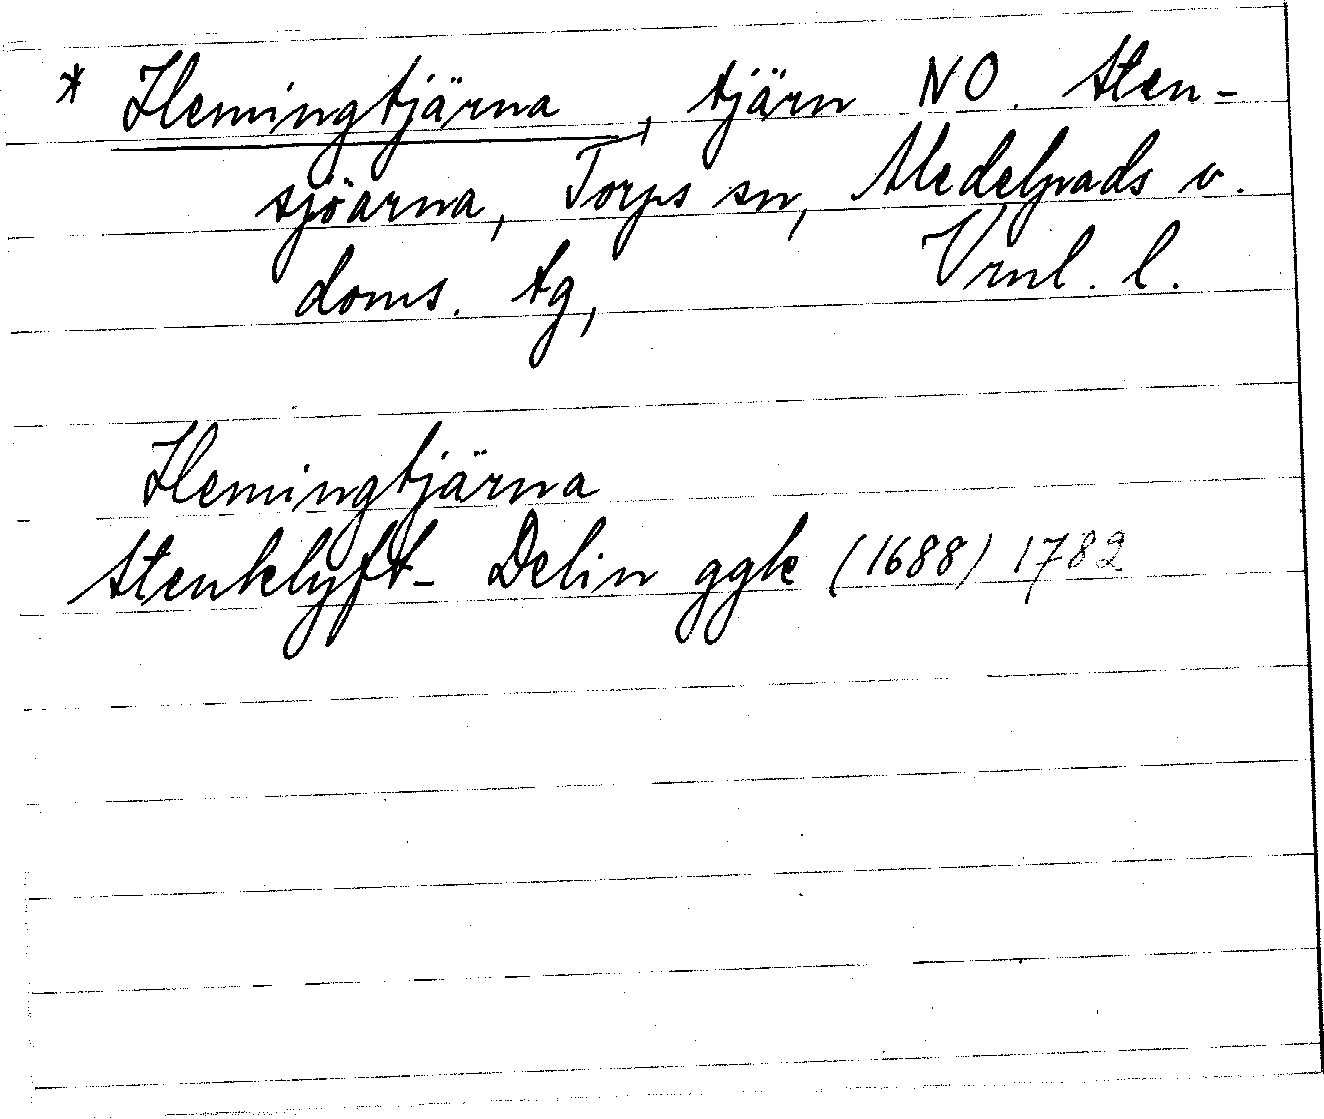 * Hemingtjärna, tjärn NO. Sten-
sjöarna, Torps sn, Medelpads v.
doms. tg, Vrnl. l.
Hemingtjärna
Stenklyft- Delin ggk (1688) 1782